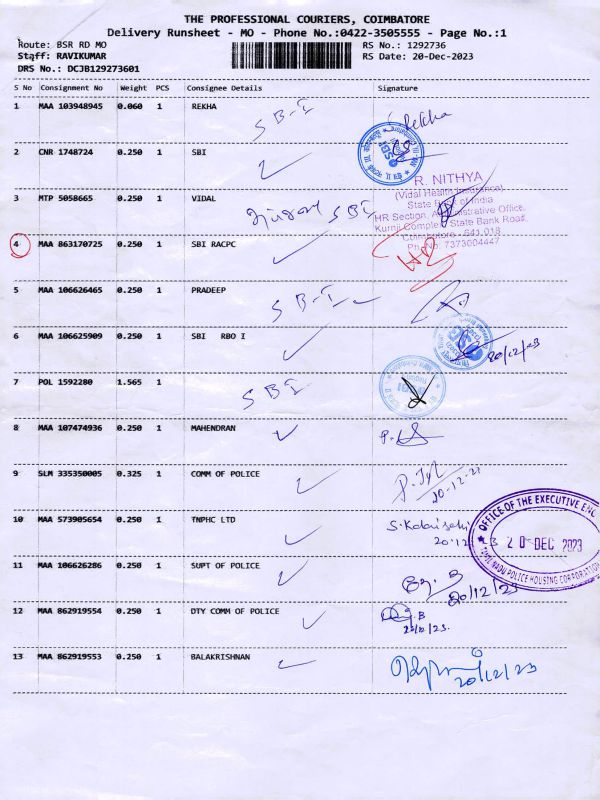 THE PROFESSIONAL COURIERS, COIMBATORE
Delivery Runsheet - MO - Phone No.:0422-3505555 - Page No.:1
Route: BSR RD MO RS No.: 1292736
Staff: RAVIKUMAR RS Date: 20-Dec-2023
DRS No.: DCJB129273601
S No Consignment No Weight PCS Consignee Details Signature
1 MAA 103948945 0.060 1 REKHA SBI Rekha
2 CNR 1748724 0.250 1 SBI
SBI
R. NITHYA
(Vidal Health Insurance)
3 MTP 5058665 0.250 1 VIDAL SBI
State Bank of India
HR Section, Administrative Office,
Kurnji Complex, State Bank Road,
Coimbatore - 641 018
Ph. No: 7373004447
4 MAA 863170725 0.250 1 SBI RACPC
5 MAA 106626465 0.250 1 PRADEEP SBI
6 MAA 106625909 0.250 1 SBI RBO I 20/12/23
7 POL 1592280 1.565 1 SBI
8 MAA 107474936 0.250 1 MAHENDRAN
9 SLM 335350005 0.325 1 COMM OF POLICE
20-12-23
10 MAA 573905654 0.250 1 TNPHC LTD
OFFICE OF THE EXECUTIVE ENG
20 DEC 2023
TAMIL NADU POLICE HOUSING CORPORATION
11 MAA 106626286 0.250 1 SUPT OF POLICE
20/12/23
12 MAA 862919554 0.250 1 DTY COMM OF POLICE
20/12/23.
13 MAA 862919553 0.250 1 BALAKRISHNAN
20/12/23